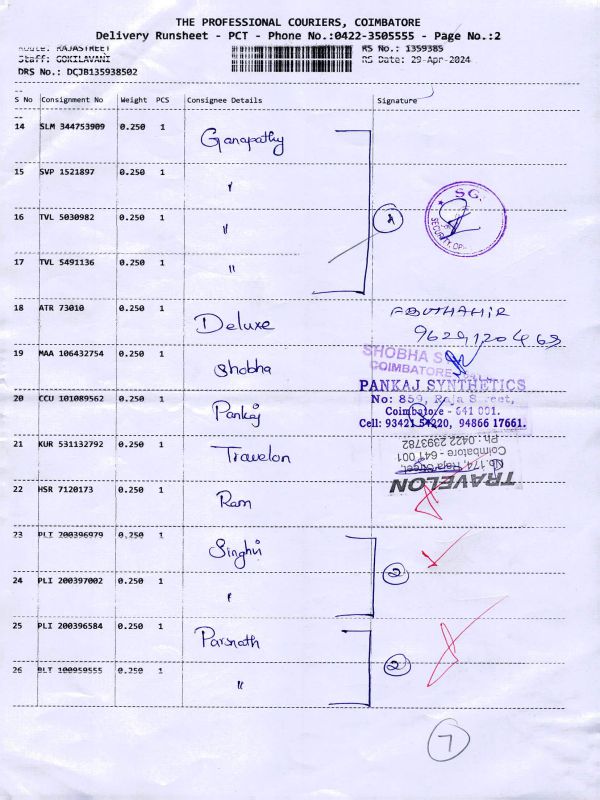 THE PROFESSIONAL COURIERS, COIMBATORE
Delivery Runsheet - PCT - Phone No.:0422-3505555 - Page No.:2
Route: RAJASTREET
RS No.: 1359385
Staff: GOKILAVANI
RS Date: 29-Apr-2024
DRS No.: DCJB135938502
S No Consignment No Weight PCS Consignee Details Signature
14 SLM 344753909 0.250 1 Ganapathy
15 SVP 1521897 0.250 1 "
16 TVL 5030982 0.250 1 " 4 SG.
17 TVL 5491136 0.250 1 "
18 ATR 73010 0.250 1 Deluxe
9629120463
19 MAA 106432754 0.250 1 Shobha
SHOBHA
COIMBATORE
20 CCU 101089562 0.250 1 Pankaj
PANKAJ SYNTHETICS
No: 859, Raja Street,
Coimbatore - 641 001.
Cell: 93421 54220, 94866 17661.
21 KUR 531132792 0.250 1 Travelon
TRAVELON
No.174, Raja Street,
Coimbatore - 641 001
Ph : 0422 2393782
22 HSR 7120173 0.250 1 Ram
23 PLI 200396979 0.250 1 Singhvi
24 PLI 200397002 0.250 1 " 2
25 PLI 200396584 0.250 1 Parsnath
26 BLT 100959555 0.250 1 " 2
7